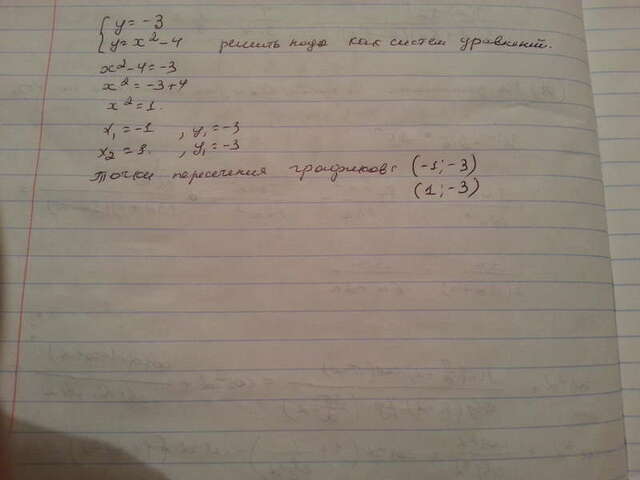 { y = -3
{ y = x² - 4 решить надо как систем уравнений.
x² - 4 = -3
x² = -3 + 4
x² = 1.
x₁ = -1 , y₁ = -3
x₂ = 1. , y₁ = -3
Точки пересечения графиков: (-1; -3)
(1; -3)